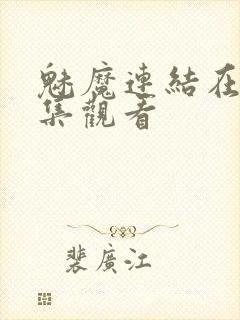 魅魔連結在
集觀看
裴廣江